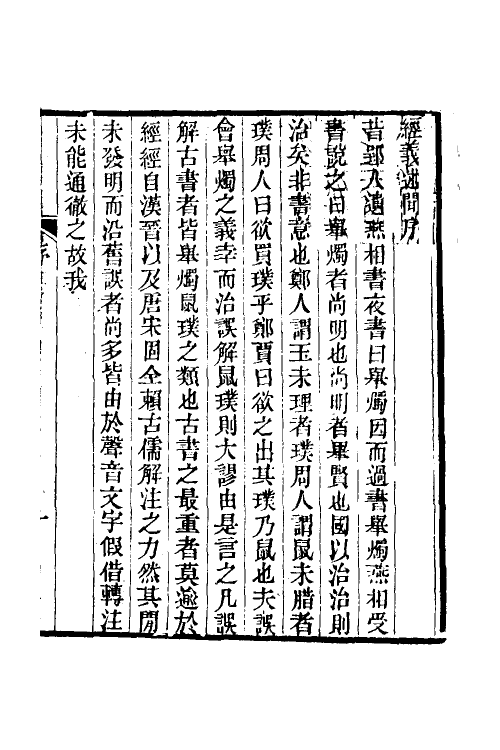 經義述聞序
昔郢人遺燕相書夜書曰舉燭因而過書舉燭燕相受
書說之曰舉燭者尚明也尚明者舉賢也國以治治則
治矣非書意也鄭人謂玉未理者璞周人謂鼠未腊者
璞周人曰欲買璞乎鄭賈曰欲之出其璞乃鼠也夫誤
會舉燭之義幸而治誤解鼠璞則大謬由是言之凡誤
解古書者皆舉燭鼠璞之類也古書之最重者莫逾於
經經自漢晉以及唐宋固全賴古儒解注之力然其閒
未發明而沿舊誤者尚多皆由於聲音文字假借轉注
未能通徹之故我
序
一